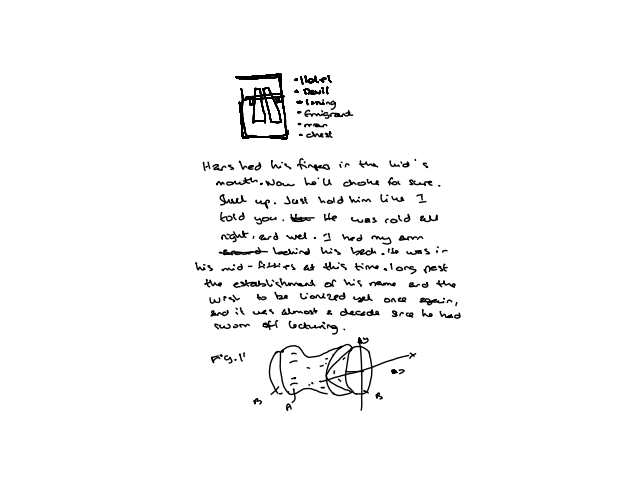 • Hotel
• Devil
• Loning
• Emigrant
• man
• chest
Hans had his finger in the kid's
mouth. Now he'll choke for sure.
Shut up. Just hold him like I
told you. He was cold all
right, and wet. I had my arm
around behind his back. He was in
his mid-fifties at this time. long past
the establishment of his name and the
wish to be lionized yet once again,
and it was almost a decade since he had
sworn off lecturing.
Fig. 1
B
A
B